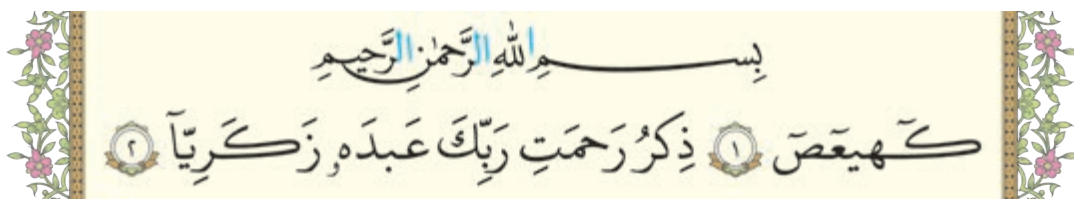 بِسمِ اللهِ الرَّحمٰنِ الرَّحيمِ
كٓهيعٓصٓ ١ ذِكرُ رَحمَتِ رَبِّكَ عَبدَهُۥ زَكَرِيّآ ٢